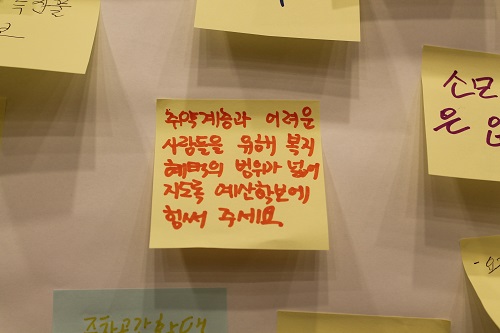 취약계층과 어려운
사람들을 위해 복지
혜택의 범위가 넓어
지도록 예산확보에
힘써 주세요
소모
은